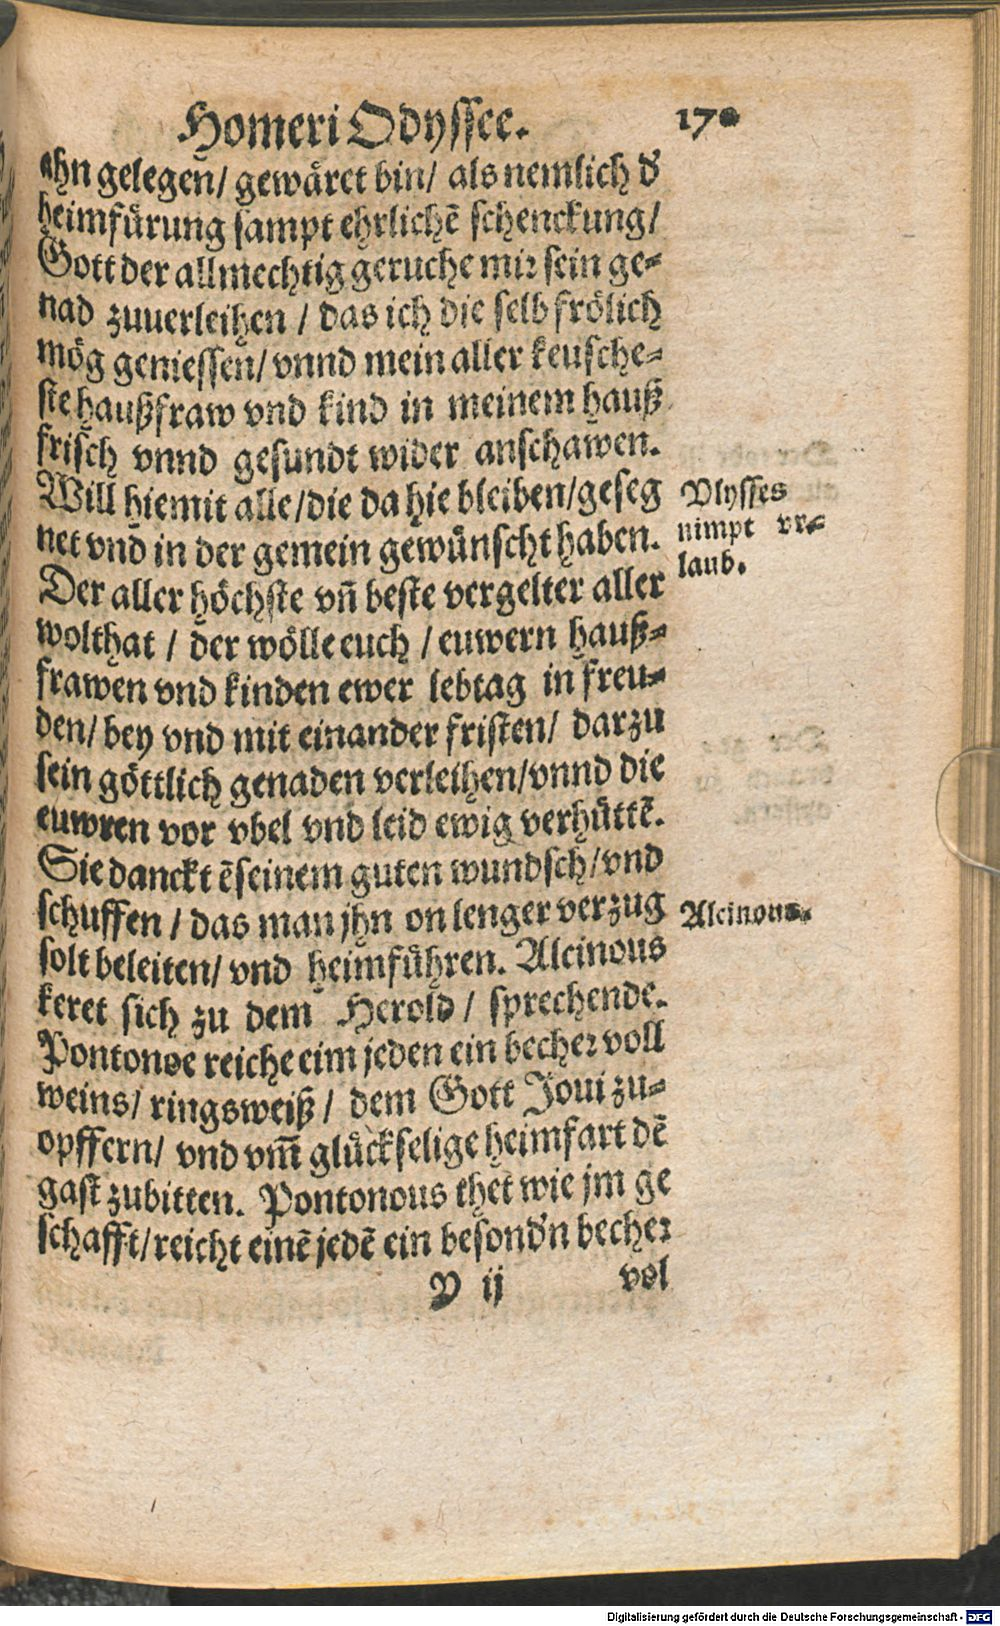 Homeri Odyssee. 170
ahn gelegen/ gewåret bin/ als nemlich d'
heimfůrung sampt ehrlichē schenckung/
Gott der allmechtig geruche mir sein ge-
nad zuuerleihen / das ich die selb frölich
mög geniessen/ vnnd mein aller keusche-
ste haußfraw vnd kind in meinem hauß
frisch vnnd gesundt wider anschawen.
Will hiemit alle/die da hie bleiben/geseg
net vnd in der gemein gewünscht haben.
Der aller höchste vñ beste vergelter aller
wolthat / der wölle euch / euwern hauß-
frawen vnd kinden ewer lebtag in freu-
den/ bey vnd mit einander fristen/ darzu
sein göttlich genaden verleihen/vnnd die
euwren vor vbel vnd leid ewig verhüttē.
Sie danckt ē seinem guten wundsch/vnd
schuffen / das man jhn on lenger verzug
solt beleiten/ vnd heimführen. Alcinous
keret sich zu dem Herold / sprechende.
Pontonoe reiche eim jeden ein becher voll
weins/ ringsweiß / dem Gott Joui zu-
opffern/ vnd vm̃ glückselige heimfart dē
gast zubitten. Pontonous thet wie jm ge
schafft/reicht einē jedē ein besond'n becher
V ij vol
Vlysses
nimpt vr-
laub.
Alcinous.
Digitalisierung gefördert durch die Deutsche Forschungsgemeinschaft - DFG